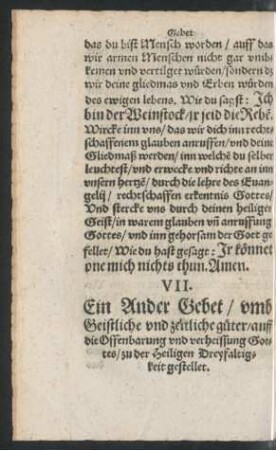 Gebet
das du bist Mensch worden / auff das
wir armen Menschen nicht gar vmb-
kemen vnd vertilget würden / sondern dz
wir deine gliedmas vnd Erben würden
des ewigen lebens. Wie du sagst: Ich
bin der Weinstock / jr seid die Rebē.
Wircke inn vns / das wir dich inn recht
schaffenem glauben anruffen / vnd deine
Gliedmaß werden / inn welchē du selber
leuchtest / vnd erwecke vnd richte an inn
vnsern hertzē / durch die lehre des Euan-
gelij / rechtschaffen erkentnis Gottes /
Vnd stercke vns durch deinen heiligen
Geist / in warem glauben vñ anruffung
Gottes / vnd inn gehorsam der Gott ge
fellet / Wie du hast gesagt: Jr könnet
one mich nichts thun. Amen.
VII.
Ein Ander Gebet / vmb
Geistliche vnd zeitliche güter / auff
die Offenbarung vnd verheissung Got-
tes / zu der Heiligen Dreyfaltig-
keit gestellet.